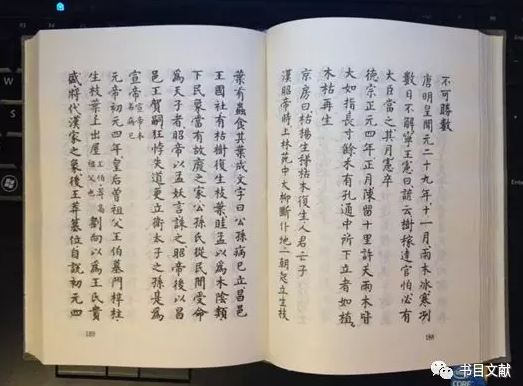 不可勝數
唐明皇開元二十九年十一月雨木冰寒冽
數日不解寧王憲曰諺云樹稼達官怕必有
大臣當之其月憲卒
德宗正元四年正月陳留十里許天雨木皆
大如指長寸餘木有孔通中所下立者如植
木枯再生
京房曰枯楊生稊枯木復生人君亡子
漢昭帝時上林苑中大柳斷仆地一朝起立生枝
188
葉有蟲食其葉成文字曰公孫病已立昌邑
王國社有枯樹復生枝葉眭孟以為木陰類
下民象當有故廢之家公孫氏從民間受命
為天子者昭帝以孟妖言誅之昭帝後以昌
邑王賀嗣狂悖失道更立衛太子之孫是為
宣帝宣帝本名病已
元帝初元四年皇后曾祖父王伯墓門梓柱
生枝葉上出屋王伯莽高祖父也劉向以為王氏貴
盛將代漢家之象後王莽篡位自說初元四
189
书目文献